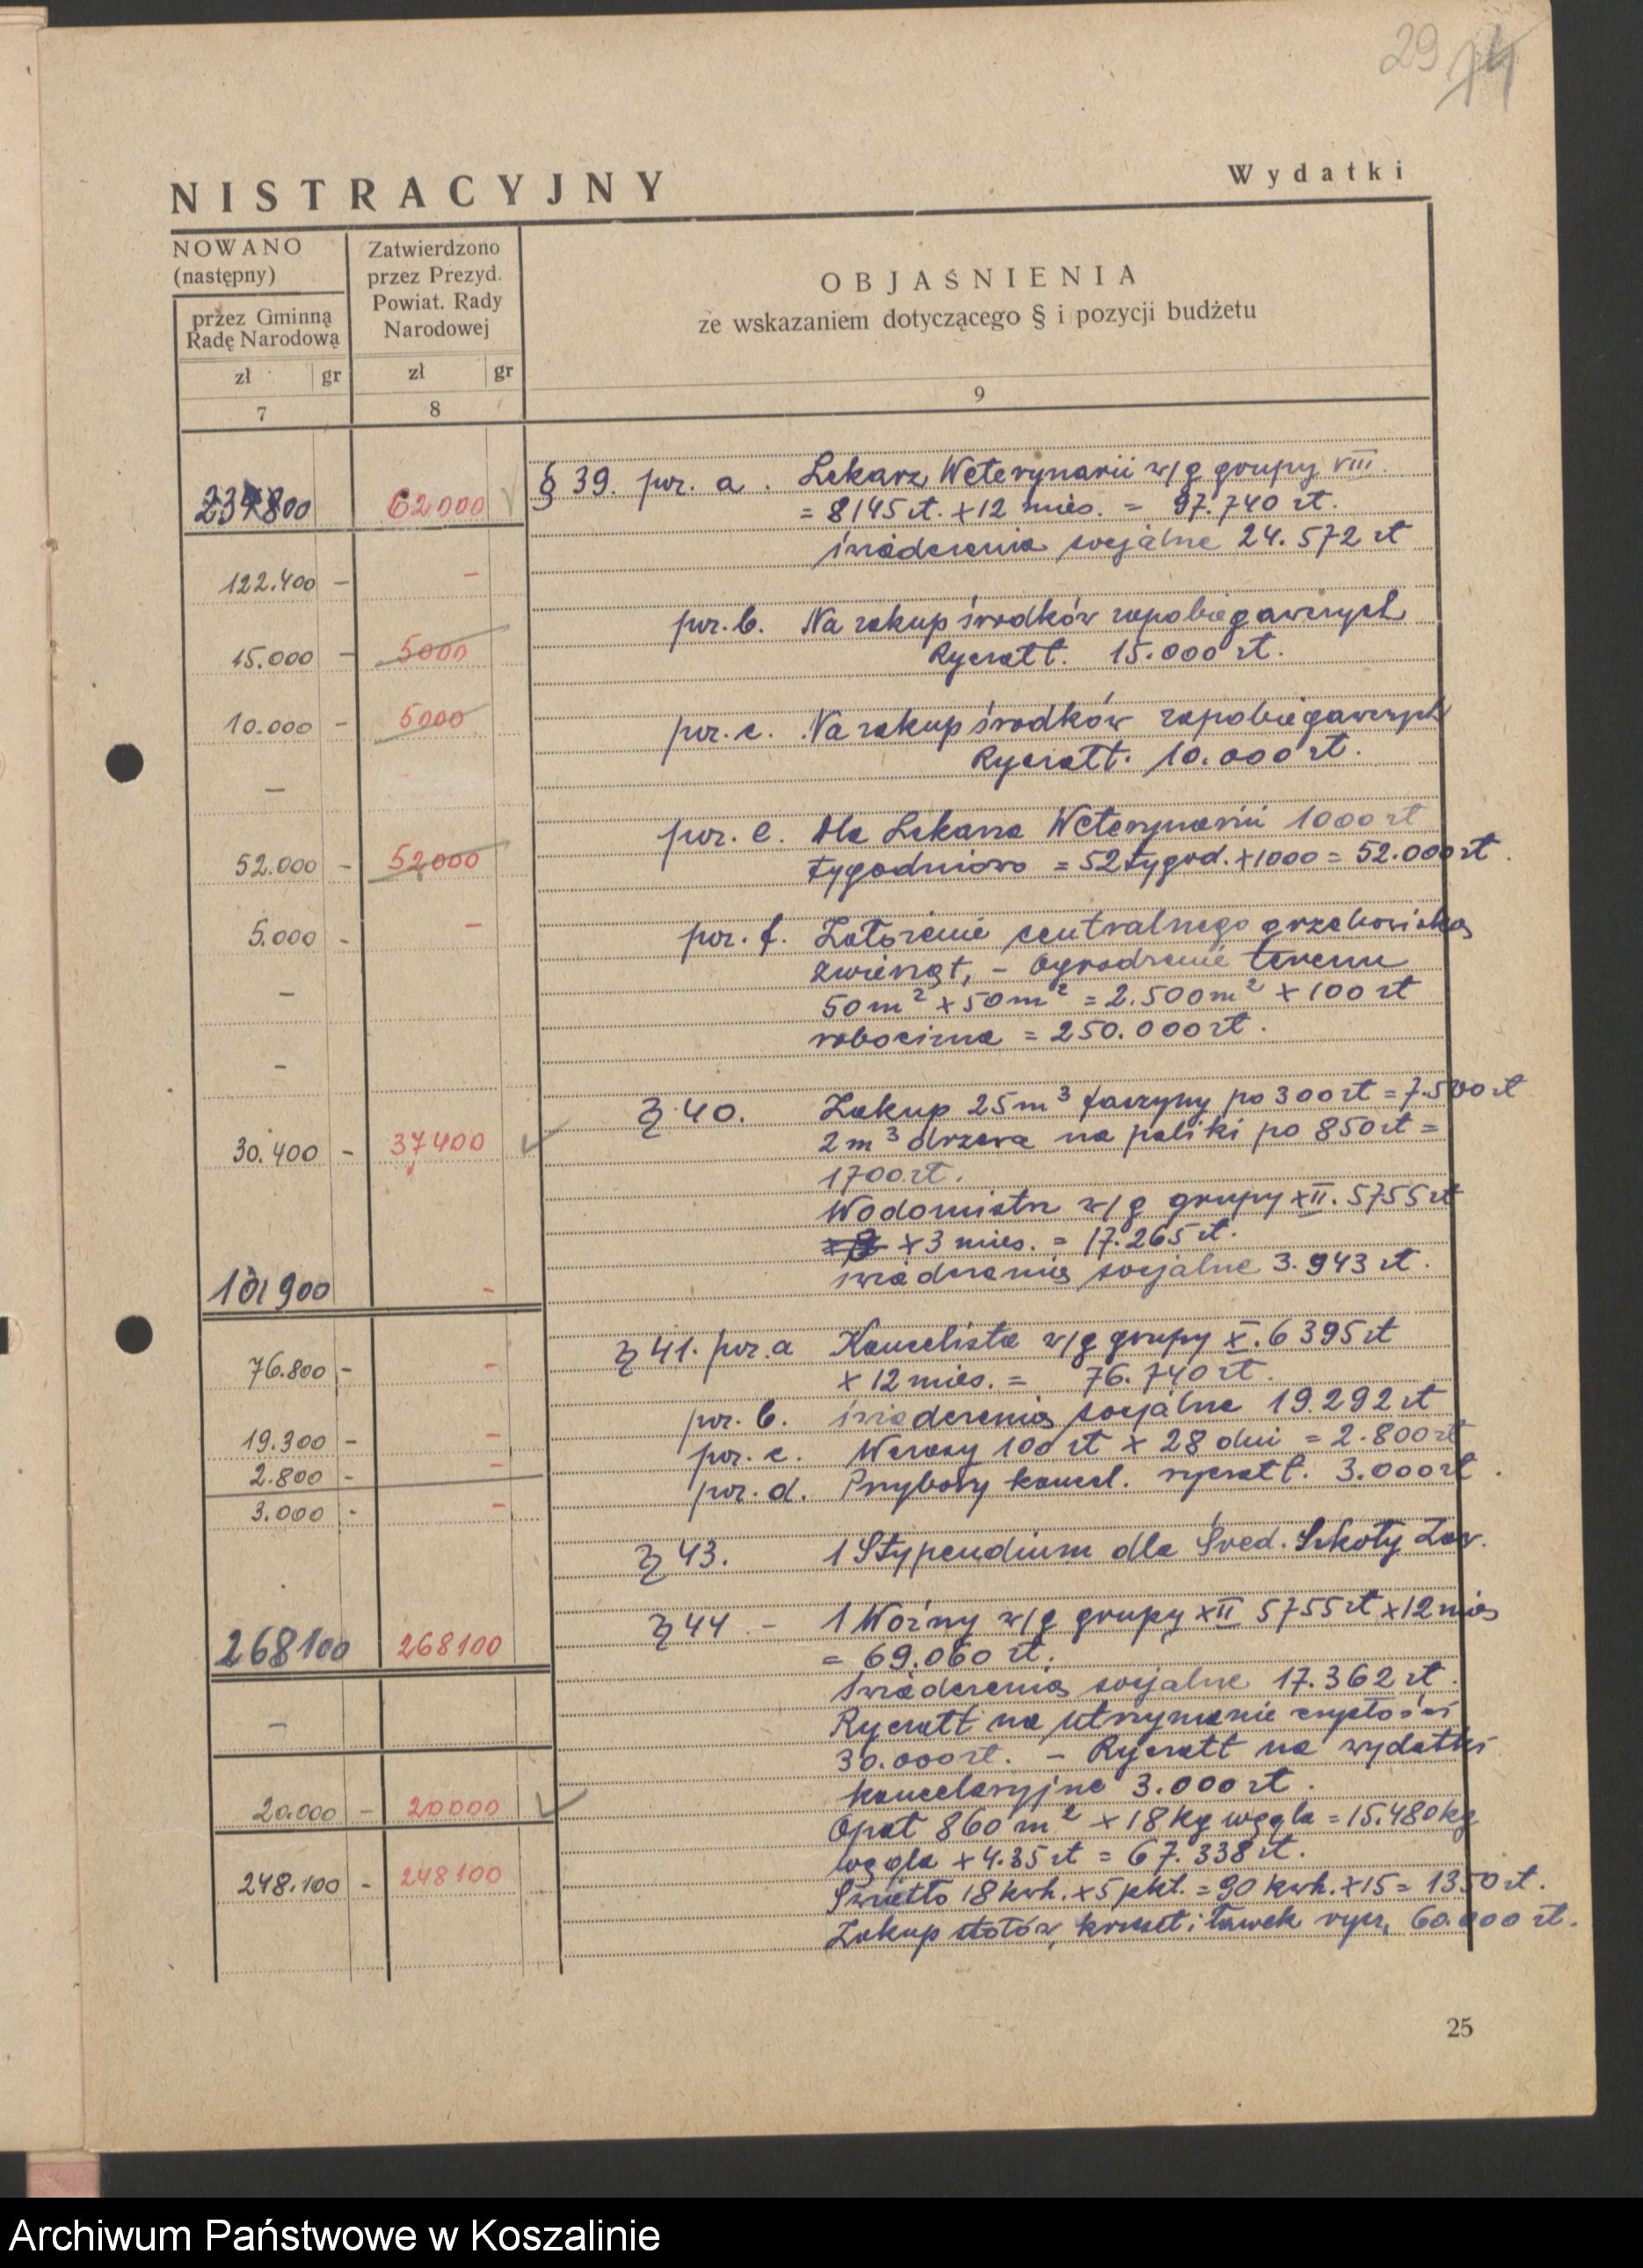 29 14
NISTRACYJNY
Wydatki
NOWANO
(następny)
przez Gminną
Radę Narodową
zł gr
7
Zatwierdzono
przez Prezyd.
Powiat. Rady
Narodowej
zł gr
8
OBJAŚNIENIA
ze wskazaniem dotyczącego § i pozycji budżetu
9
800 62000
122.400 - -
15.000 - 5000
10.000 - 5000
-
52.000 - 52000
5.000 - -
-
-
30.400 - 37400
101900 -
76.800 - -
19.300 - -
2.800 - -
3.000 - -
268100 268100
-
20.000 - 20000
248.100 - 248100
§ 39. poz. a. Lekarz Weterynarii w/g grupy VIII.
= 8145 zł. x 12 mies. = 97.740 zł.
świadczenia socjalne 24.572 zł
poz. b. Na zakup środków zapobiegawczych
Ryczałt. 15.000 zł.
poz. c. Na zakup środków zapobiegawczych
Ryczałt. 10.000 zł.
poz. e. Dla Lekarza Weterynarii 1000 zł
tygodniowo = 52 tygod. x 1000 = 52.000 zł.
poz. f. Założenie centralnego grzebowiska
zwierząt, - Ogrodzenie terenu
50 m² x 50 m² = 2.500 m² x 100 zł
robocizna = 250.000 zł.
§ 40. Zakup 25 m³ faszyny po 300 zł = 7.500 zł
2 m³ drzewa na paliki po 850 zł =
1700 zł.
Wodomistrz w/g grupy XII. 5755 zł
x 3 mies. = 17.265 zł.
świadczenia socjalne 3.943 zł.
§ 41. poz. a Kancelista w/g grupy X. 6395 zł
x 12 mies. = 76.740 zł.
poz. b. świadczenia socjalne 19.292 zł
poz. c. Wczasy 100 zł x 28 dni = 2.800 zł
poz. d. Przybory kancel. ryczałt. 3.000 zł.
§ 43. 1 Stypendium dla Śred. Szkoły Zaw.
§ 44 - 1 Woźny w/g grupy XII 5755 zł x 12 mies
= 69.060 zł.
świadczenia socjalne 17.362 zł.
Ryczałt na utrzymanie czystości
30.000 zł. - Ryczałt na wydatki
kancelaryjne 3.000 zł.
Opał 860 m² x 18 kg węgla = 15.480 kg
węgla x 4.35 zł = 67.338 zł.
Światło 18 kwh. x 5 pkt. = 90 kwh. x 15 = 1350 zł.
Zakup stołów, krzeseł i ławek rycz. 60.000 zł.
25
Archiwum Państwowe w Koszalinie